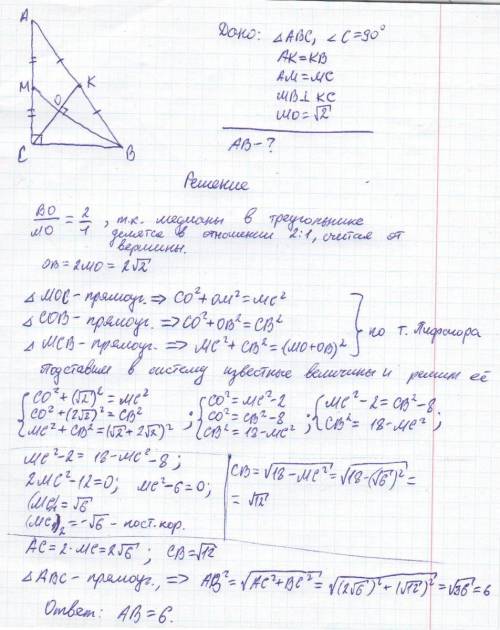 A
M
K
O
C
B
Дано: △ABC, ∠C=90°
AK=KB
AM=MC
MB⊥KC
MO=√2
AB-?
Решение
BO/MO = 2/1, т.к. медианы в треугольнике
делятся в отношении 2:1, считая от
вершины.
OB=2MO=2√2
△MOC-прямоуг. ⇒ CO²+OM²=MC²
△COB-прямоуг. ⇒ CO²+OB²=CB²
△MCB-прямоуг. ⇒ MC²+CB²=(MO+OB)²
} по т. Пифагора
Подставим в систему известные величины и решим её
{CO²+(√2)²=MC² ; {CO²=MC²-2 ; {MC²-2=CB²-8 ;
CO²+(2√2)²=CB² CO²=CB²-8 CB²=18-MC²
MC²+CB²=(√2+2√2)² CB²=18-MC²
MC²-2=18-MC²-8;
2MC²-12=0; MC²-6=0;
(MC)₁=√6
(MC)₂=-√6 - пост. кор.
CB=√18-MC²=√18-(√6)²=
=√12
AC=2·MC=2√6; CB=√12
△ABC-прямоуг., ⇒ AB²=√AC²+BC²=√(2√6)²+(√12)²=√36=6
Ответ: AB=6.